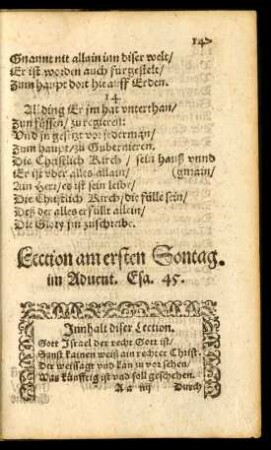 147
Gnannt nit allain inn diser welt/
Er ist worden auch furgestelt/
Zum haupt dort hie auff Erden.
14
All ding Er jm hat vnterthan/
Zun füssen/ zu regierē:
Vnd jn gesetzt vor jederman/
Zum haupt/ zu Gubernieren.
Die Christlich Kirch/ sein hauß vnnd
Er ist vber alles allain/ (gmain/
Ain Herr/ es ist sein leibe/
Die Christlich Kirch/ die fülle sein/
Deß der alles erfüllt allein/
Die Glory jm zuschribe.
Lection am ersten Sontag.
im Aduent. Esa. 45.
Innhalt diser Lection.
Gott Israel der recht Gott ist/
Sunst kainen weiß ain rechter Christ.
Der weissagt vnd kan zu vor sehen/
Was künfftig ist vnd soll geschehen.
A a iiij Durch